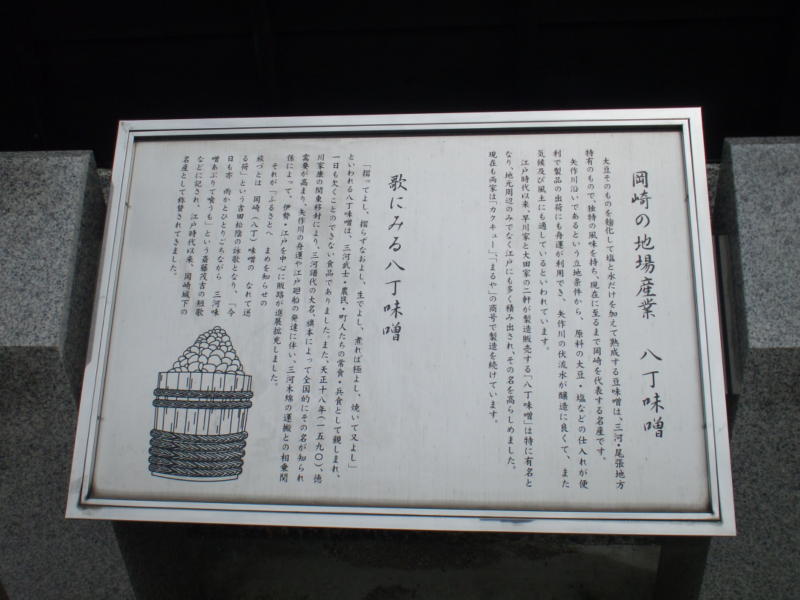 岡崎の地場産業　八丁味噌
大豆そのものを麹化して塩と水だけを加えて熟成する豆味噌は、三河・尾張地方
特有のもので、独特の風味を持ち、現在に至るまで岡崎を代表する名産です。
矢作川沿いであるという立地条件から、原料の大豆・塩などの仕入れが便
利で製品の出荷にも舟運が利用でき、矢作川の伏流水が醸造に良くて、また
気候及び風土にも適しているといわれています。
江戸時代以来、早川家と大田家の二軒が製造販売する「八丁味噌」は特に有名と
なり、地元周辺のみでなく江戸にも多く積み出され、その名を高らしめました。
現在も両家は「カクキュー」、「まるや」の商号で製造を続けています。
歌にみる八丁味噌
「摺ってよし、摺らずなおよし、生でよし、煮れば極よし、焼いて又よし」
といわれる八丁味噌は、三河武士・農民・町人たちの常食・兵食として親しまれ、
一日も欠くことのできない食品でありました。また、天正十八年（一五九〇）、徳
川家康の関東移封により、三河譜代の大名、旗本によって全国的にその名が知られ
需要が高まり、矢作川の舟運や江戸廻船の発達に伴い、三河木綿の運搬との相乗関
係によって、伊勢・江戸を中心に販路が進展拡充しました。
それが「ふるさとへ　まめを知らせの
旅づとは　岡崎（八丁）味噌の　なれて送
る荷」という吉田松陰の詠歌となり、「今
日も亦　雨かとひとりごちながら　三河味
噌あぶりて喰うも」という斎藤茂吉の短歌
などに記され、江戸時代以来、岡崎城下の
名産として称賛されてきました。